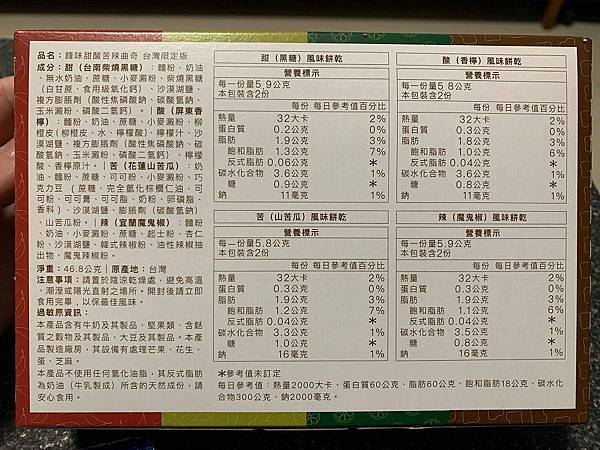 品名：鋒味甜酸苦辣曲奇 台灣限定版
成分：甜（台南柴燒黑糖）：麵粉、奶油
、無水奶油、蔗糖、小麥澱粉、柴燒黑糖
（白甘蔗、食用級氧化鈣）、沙漠湖鹽、
複方膨脹劑（酸性焦磷酸鈉、碳酸氫鈉、
玉米澱粉、磷酸二氫鈣）。| 酸（屏東香
檸）：麵粉、奶油、蔗糖、小麥澱粉、柳
橙皮(柳橙皮、水、檸檬酸)、檸檬汁、沙
漠湖鹽、複方膨脹劑（酸性焦磷酸鈉、碳
酸氫鈉、玉米澱粉、磷酸二氫鈣）、檸檬
酸、香檸原汁。| 苦（花蓮山苦瓜）：奶
油、麵粉、蔗糖、可可粉、小麥澱粉、巧
克力豆（蔗糖、完全氫化棕櫚仁油、可
可粉、可可膏、可可脂、奶粉、卵磷脂、
香料）、沙漠湖鹽、膨脹劑（碳酸氫鈉）
、山苦瓜粉。| 辣（宜蘭魔鬼椒）：麵粉
、奶油、小麥澱粉、蔗糖、起士粉、杏仁
粉、沙漠湖鹽、韓式辣椒粉、油性辣椒抽
出物、魔鬼辣椒粉。
淨重：46.8公克 | 原產地：台灣
注意事項：請置於陰涼乾燥處，避免高溫
、潮溼或陽光直射之場所。開封後請立即
食用完畢，以保最佳風味。
過敏原資訊：
本產品含有牛奶及其製品、堅果類、含麩
質之穀物及其製品、大豆及其製品。本產
品製造廠房，其設備有處理芒果、花生、
蛋、芝麻。
本產品不使用任何氫化油脂，其反式脂肪
為奶油（牛乳製成）所含的天然成份，請
安心食用。
甜（黑糖）風味餅乾
營養標示
每一份量5.9公克
本包裝含2份
每份 每日參考值百分比
熱量 32大卡 2%
蛋白質 0.2公克 0%
脂肪 1.9公克 3%
飽和脂肪 1.3公克 7%
反式脂肪 0.06公克 ＊
碳水化合物 3.6公克 1%
糖 0.9公克 ＊
鈉 11毫克 1%
酸（香檸）風味餅乾
營養標示
每一份量5.8公克
本包裝含2份
每份 每日參考值百分比
熱量 32大卡 2%
蛋白質 0.3公克 0%
脂肪 1.8公克 3%
飽和脂肪 1.0公克 6%
反式脂肪 0.04公克 ＊
碳水化合物 3.6公克 1%
糖 0.8公克 ＊
鈉 14毫克 1%
苦（山苦瓜）風味餅乾
營養標示
每一份量5.8公克
本包裝含2份
每份 每日參考值百分比
熱量 32大卡 2%
蛋白質 0.3公克 0%
脂肪 1.9公克 3%
飽和脂肪 1.2公克 7%
反式脂肪 0.04公克 ＊
碳水化合物 3.3公克 1%
糖 1.0公克 ＊
鈉 16毫克 1%
辣（魔鬼椒）風味餅乾
營養標示
每一份量5.9公克
本包裝含2份
每份 每日參考值百分比
熱量 32大卡 2%
蛋白質 0.3公克 0%
脂肪 1.9公克 3%
飽和脂肪 1.1公克 6%
反式脂肪 0.04公克 ＊
碳水化合物 3.5公克 1%
糖 0.8公克 ＊
鈉 16毫克 1%
＊參考值未訂定
每日參考值：熱量2000大卡、蛋白質60公克、脂肪60公克、飽和脂肪18公克、碳水化
合物300公克、鈉2000毫克。